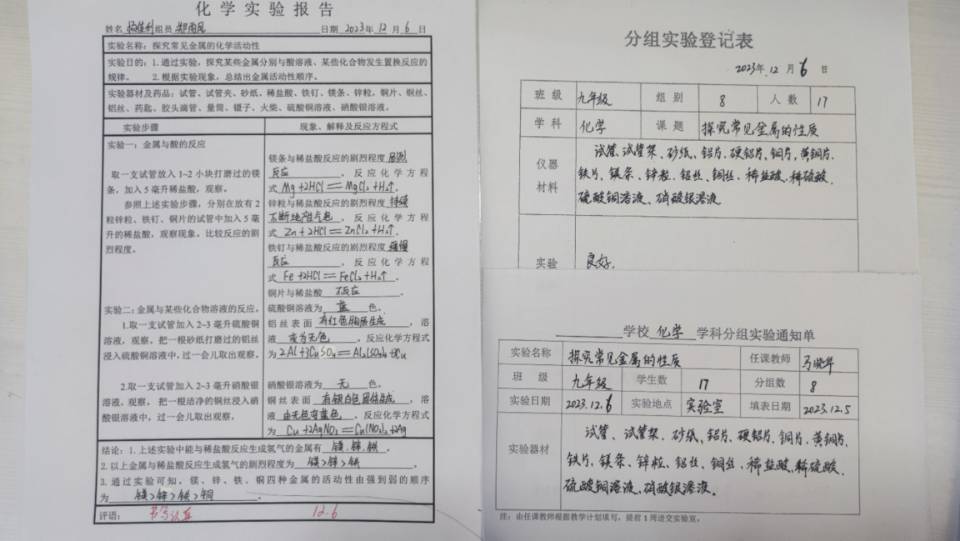 化学实验报告
姓名 组员 日期 2023年12月6日
实验名称：探究常见金属的化学活动性
实验目的：1.通过实验，探究某些金属分别与酸溶液、某些化合物发生置换反应的
规律。 2.根据实验现象，总结出金属活动性顺序。
实验器材及药品：试管、试管夹、砂纸、稀盐酸、铁钉、镁条、锌粒、铜片、铜丝、
铝丝、药匙、胶头滴管、量筒、镊子、火柴、硫酸铜溶液、硝酸银溶液。
实验步骤 现象、解释及反应方程式
实验一：金属与酸的反应
取一支试管放入1~2小块打磨过的镁
条，加入5毫升稀盐酸，观察。
参照上述实验步骤，分别在放有2
粒锌粒、铁钉、铜片的试管中加入5毫
升的稀盐酸，观察现象、比较反应的剧
烈程度。
镁条与稀盐酸反应的剧烈程度剧烈
反应，反应化学方程
式Mg+2HCl=MgCl2+H2↑.
锌粒与稀盐酸反应的剧烈程度持续
不断地产生气泡，反应化学方程
式Zn+2HCl=ZnCl2+H2↑.
铁钉与稀盐酸反应的剧烈程度缓慢
反应，反应化学方程
式Fe+2HCl=FeCl2+H2↑.
铜片与稀盐酸 不反应。
实验二：金属与某些化合物溶液的反应。
1.取一支试管加入2~3毫升硫酸铜
溶液，观察，把一根砂纸打磨过的铝丝
浸入硫酸铜溶液中，过一会儿取出观察。
硫酸铜溶液为 蓝 色。
铝丝表面 有红色固体生成，溶
液 变为无色，反应化学方程式
为2Al+3CuSO4=Al2(SO4)3+3Cu
2.取一支试管加入2~3毫升硝酸银
溶液，观察，把一根洁净的铜丝浸入硝
酸银溶液中，过一会儿取出观察。
硝酸银溶液为 无 色。
铜丝表面 有银白色固体生成，溶
液 由无色变蓝色，反应化学方程式
为Cu+2AgNO3=Cu(NO3)2+2Ag
结论：1.上述实验中能与稀盐酸反应生成氢气的金属有 镁、锌、铁。
2.以上金属与稀盐酸反应生成氢气的剧烈程度为 镁>锌>铁。
3.通过实验可知，镁、锌、铁、铜四种金属的活动性由强到弱的顺序
为 镁>锌>铁>铜。
评语： 书写认真 12.6
分组实验登记表
2023年12月6日
班级 九年级 组别 8 人数 17
学科 化学 课题 探究常见金属的性质
仪器材料 试管、试管架、砂纸、铝片、硬铝片、铜片、黄铜片、
铁片、镁条、锌粒、铝丝、铜丝、稀盐酸、稀硫酸、
硫酸铜溶液、硝酸银溶液
实验 良好.
学校 化学 学科分组实验通知单
实验名称 探究常见金属的性质 任课教师 马晓华
班级 九年级 学生数 17 分组数 8
实验日期 2023.12.6 实验地点 实验室 填表日期 2023.12.5
实验器材 试管、试管架、砂纸、铝片、硬铝片、铜片、黄铜片、
铁片、镁条、锌粒、铝丝、铜丝、稀盐酸、稀硫酸、
硫酸铜溶液、硝酸银溶液。
注：由任课教师根据教学计划填写，提前1周送交实验室。